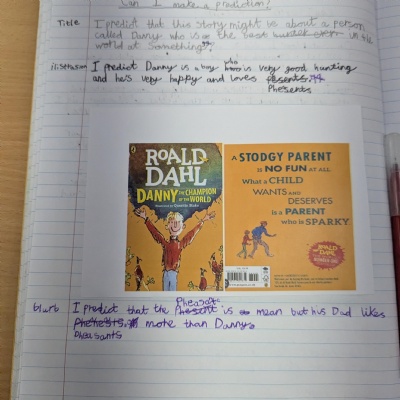 Can I make a prediction?
Title I predict that this story might be about a person
called Danny who is the best in the
world at something
I predict Danny is a boy who is very good hunting
and he's very happy and loves
Phesents
ROALD
DAHL
DANNY THE CHAMPION
OF THE WORLD
Illustrated by Quentin Blake
A STODGY PARENT
is NO FUN AT ALL
What a CHILD
WANTS AND
DESERVES
is a PARENT
who is SPARKY
ROALD
DAHL
blurb I predict that the Pheasant is mean but his Dad likes
more than Danny
pheasants